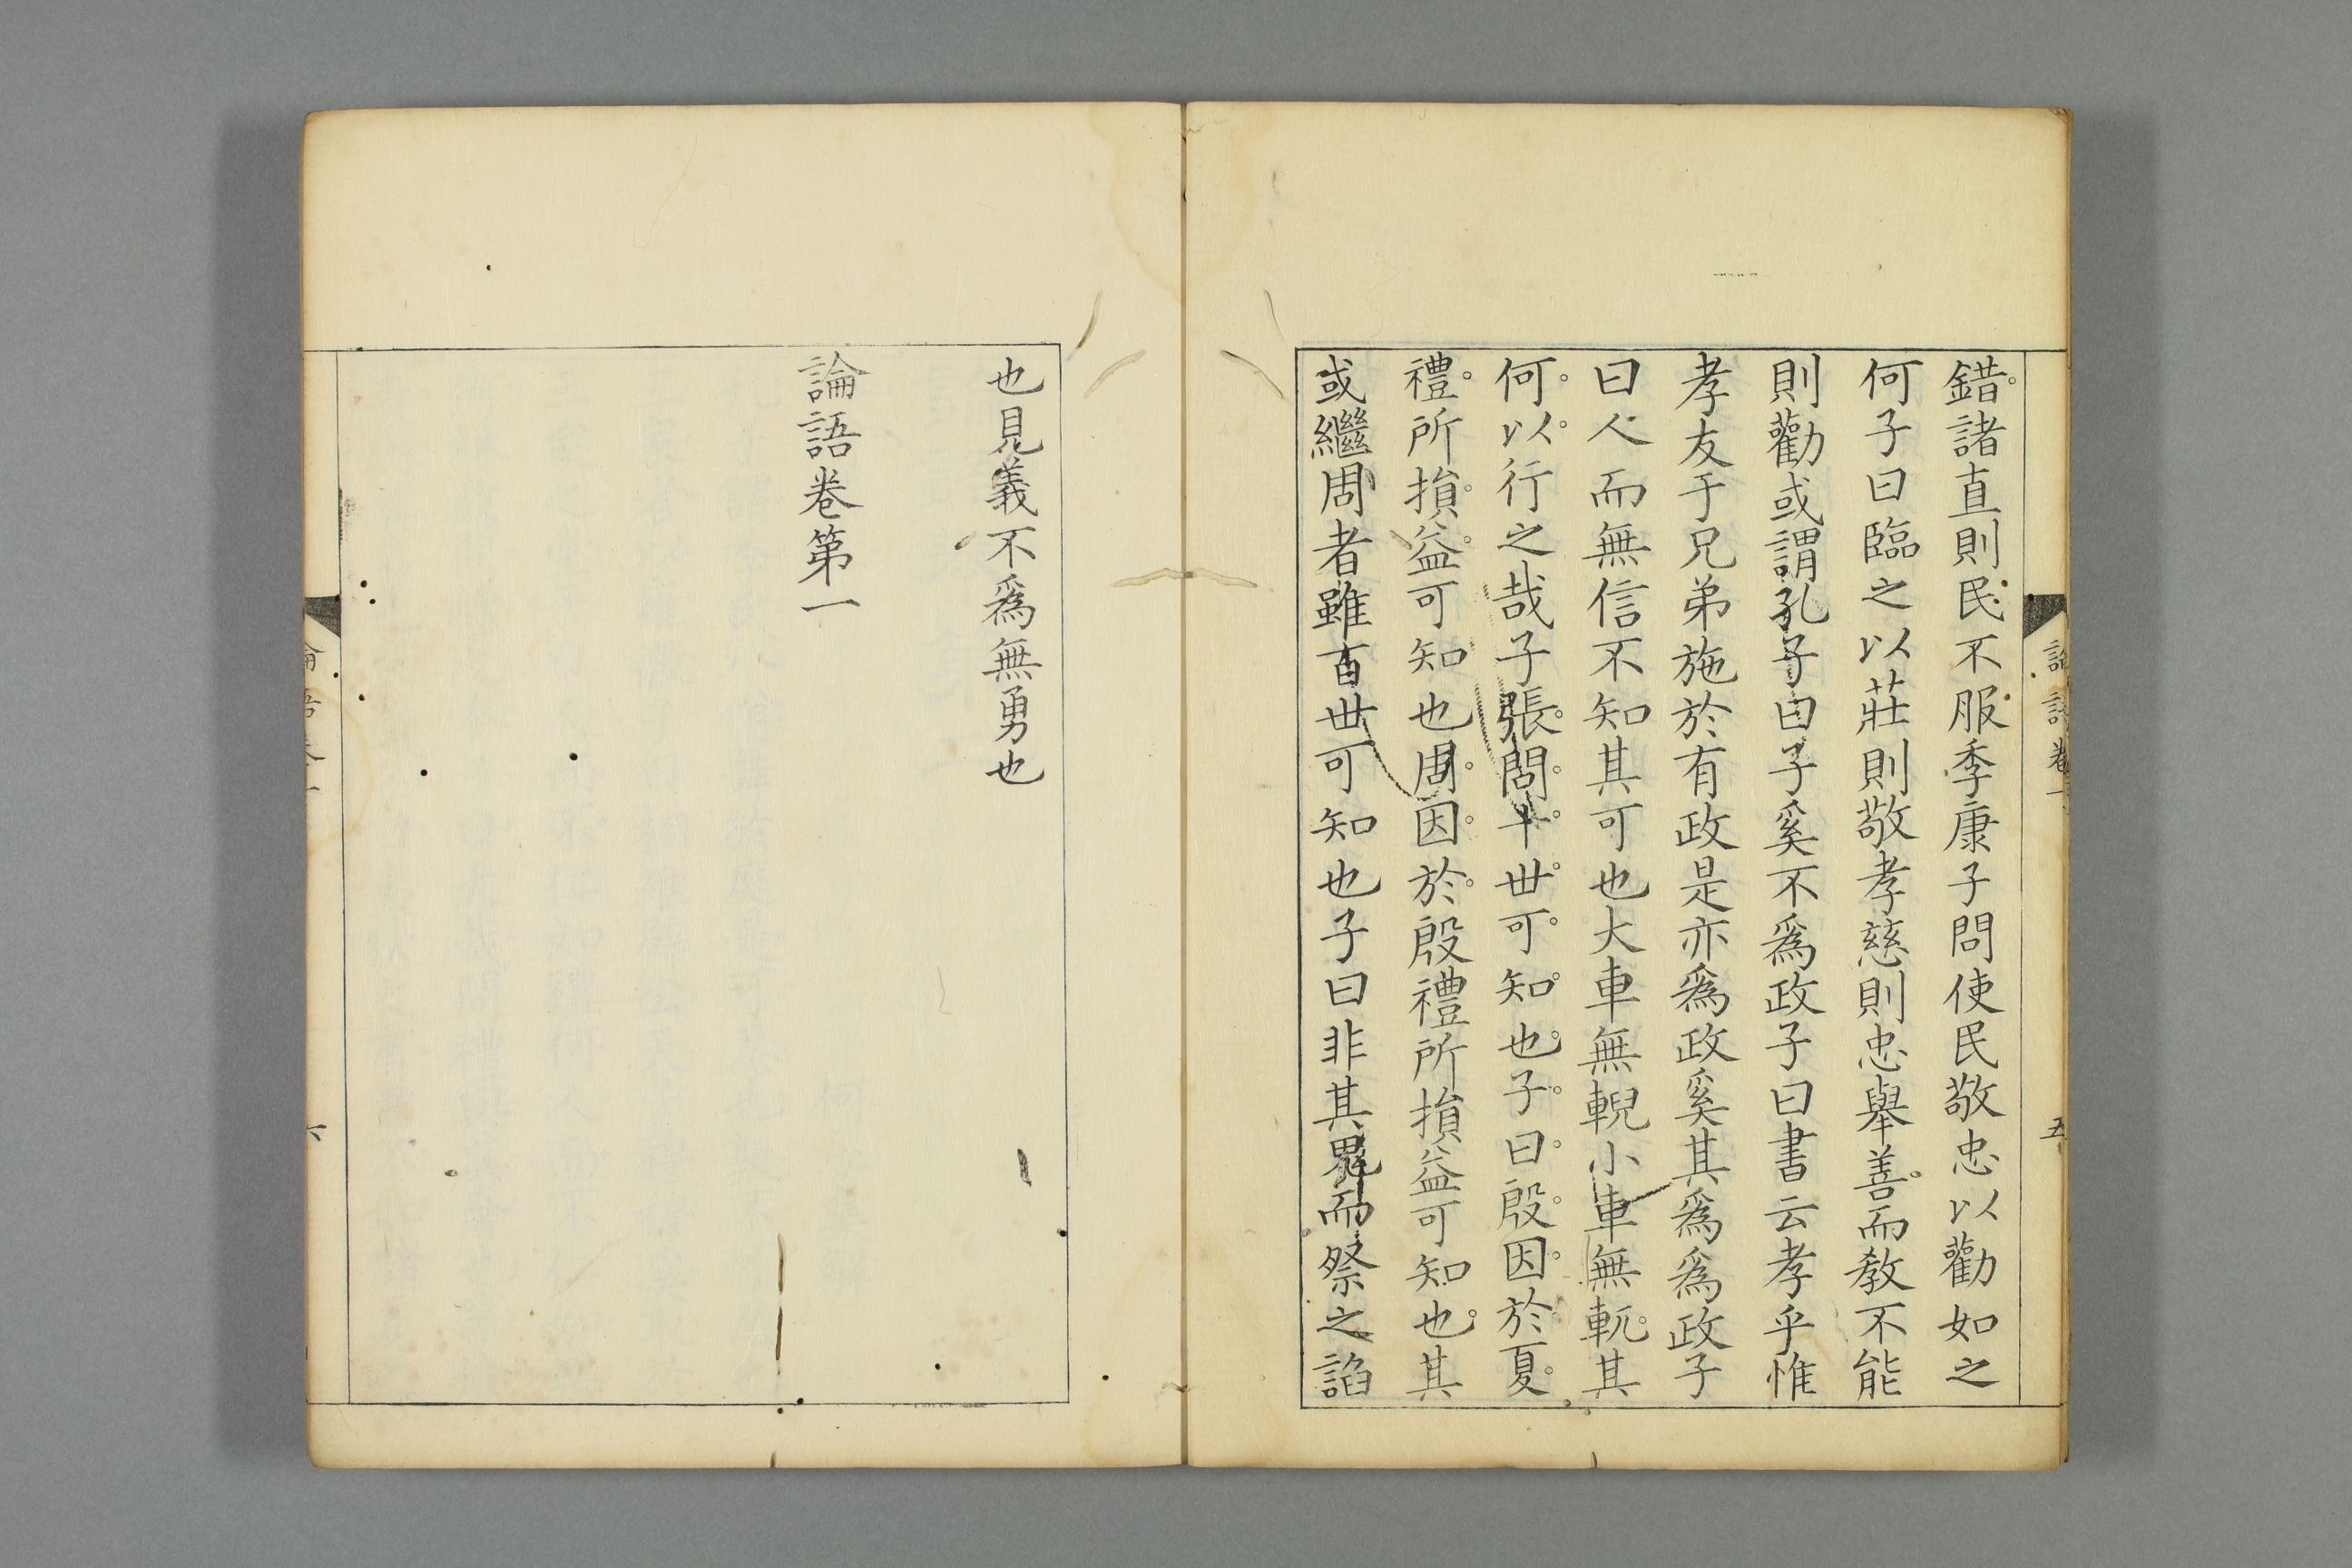 錯諸直則民不服季康子問使民敬忠以勸如之
何子曰臨之以莊則敬孝慈則忠舉善而教不能
則勸或謂孔子曰子奚不爲政子曰書云孝乎惟
孝友于兄弟施於有政是亦爲政奚其爲爲政子
曰人而無信不知其可也大車無輗小車無軏其
何以行之哉子張問十世可知也子曰殷因於夏
禮所損益可知也周因於殷禮所損益可知也其
或繼周者雖百世可知也子曰非其鬼而祭之諂
也見義不爲無勇也
論語卷第一
論語卷一
五
六